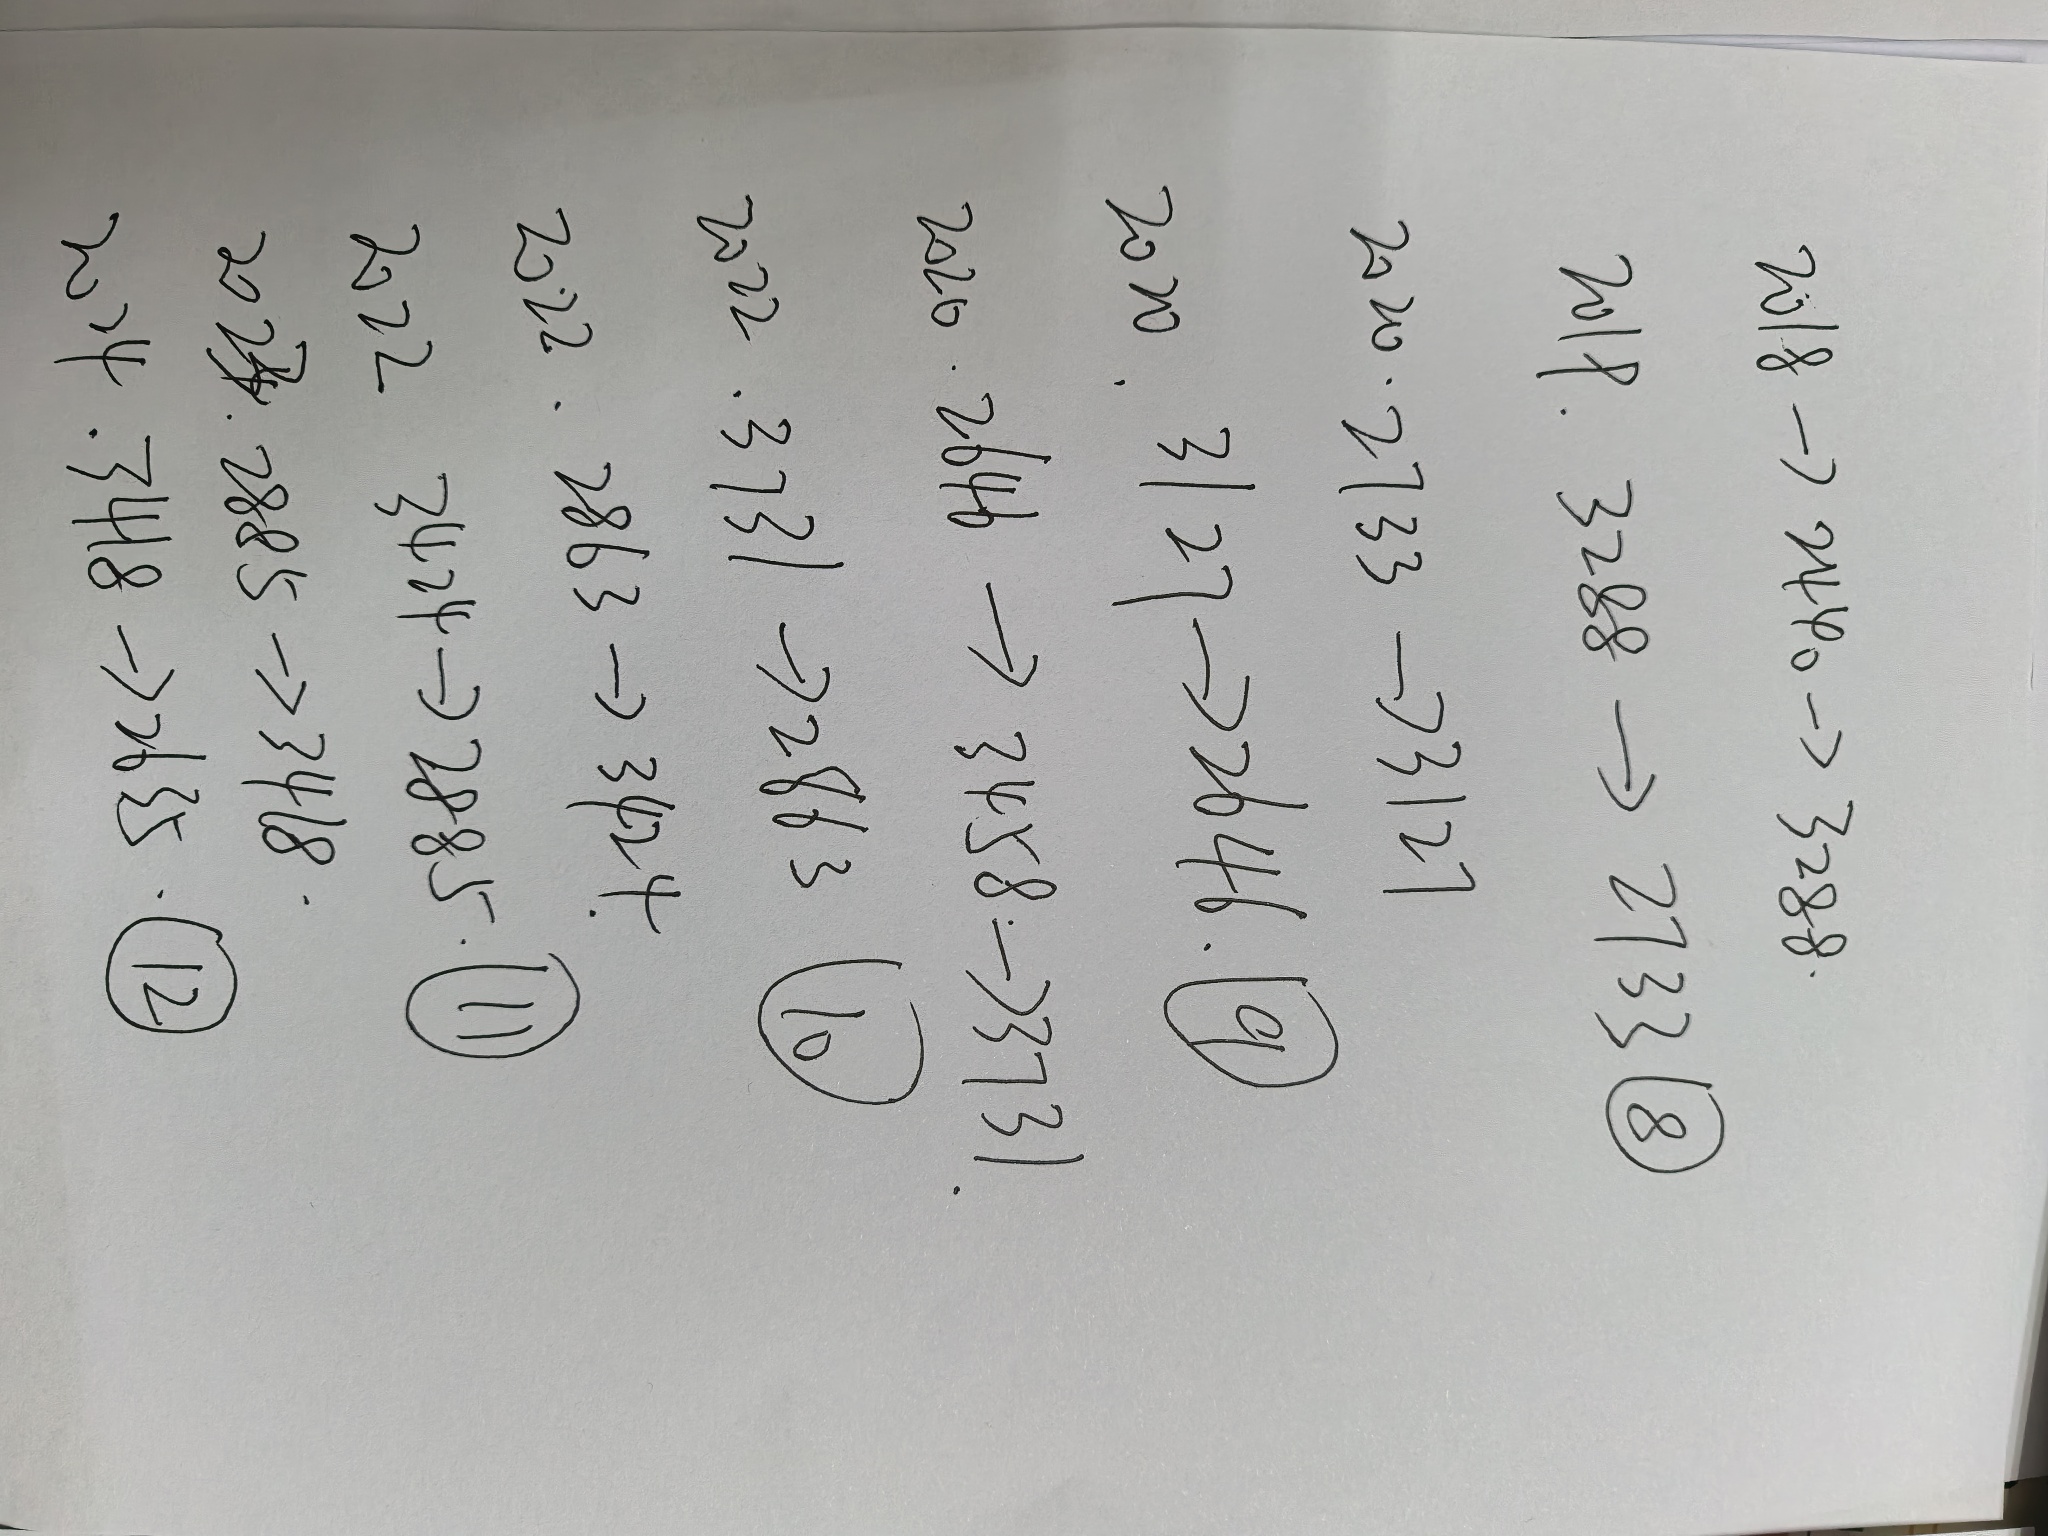 2018 → 2440 → 3288.
2018. 3288 → 2733 ⑧
2020. 2733 → 3127
2020. 3127 → 2646. ⑨
2020. 2646 → 3458. → 3731.
2022. 3731 → 2863 ⑩
2022. 2863 → 3424.
2022 3424 → 2885. ⑪
2885 → 3418.
2024. 3418 → 2635. ⑫